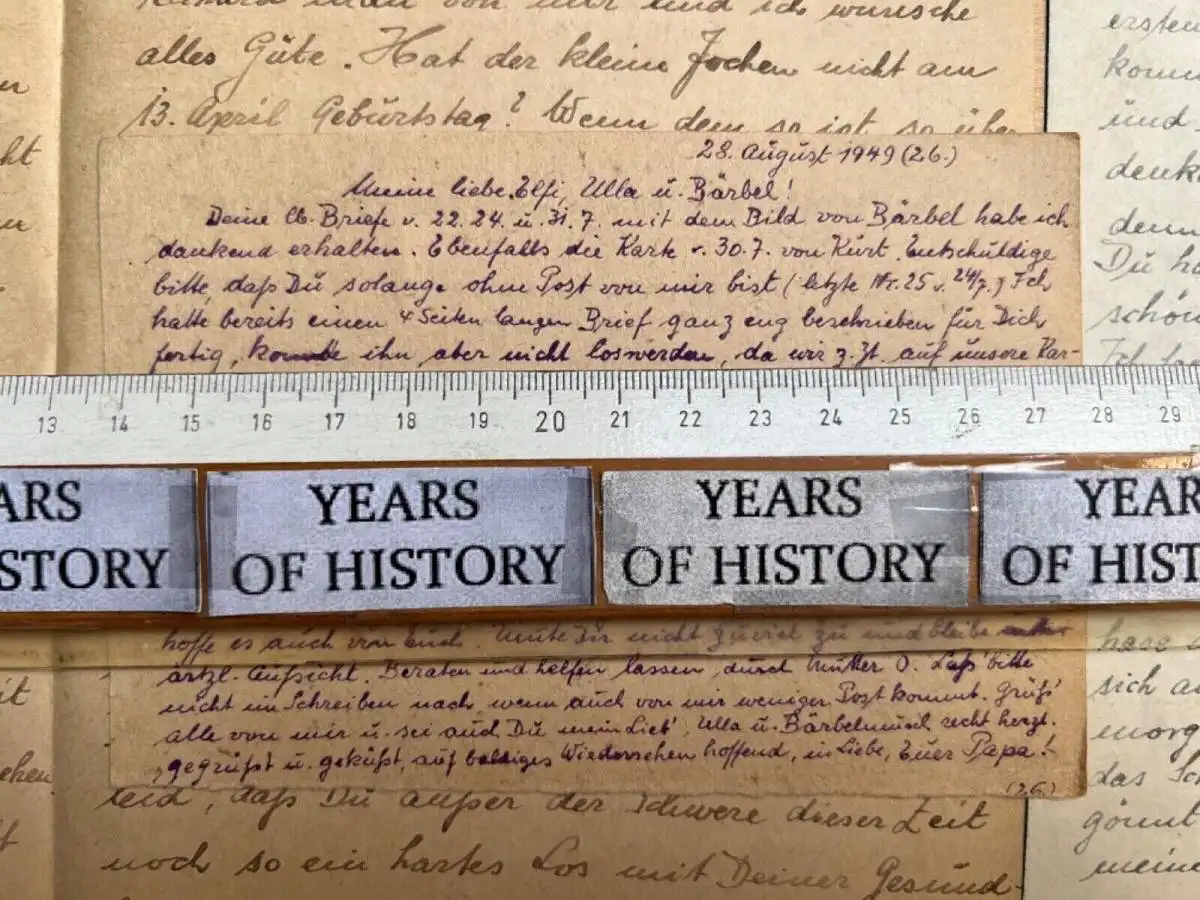 alles Güte. Hat der kleine Jochen nicht am
13. April Gebürtstag? Wenn dem so ist, so über
28. Aügust 1949 (26.)
Meine liebe Elfi, Ulla ü. Bärbel!
Deine lb. Briefe v. 22. 24. ü. 31.7. mit dem Bild von Bärbel habe ich
dankend erhalten. Ebenfalls die Karte v. 30.7. von Kürt. Entschüldige
bitte, daß Dü solange ohne Post von mir bist (letzte Nr. 25 v. 24/7.) Ich
hatte bereits einen 4 Seiten langen Brief ganz eng beschrieben für Dich
fertig, konnte ihn aber nicht loswerden, da wir z. Zt. auf ünsere Kar-
13 14 15 16 17 18 19 20 21 22 23 24 25 26 27 28 29
ARS
STORY
YEARS
OF HISTORY
YEARS
OF HISTORY
YEAR
OF HIST
hoffe es auch von Euch. Mute Dir nicht zuviel zu und bleibe unter
ärtzl. Aufsicht. Beraten und helfen lassen, durch Mütter O. Laß bitte
nicht im Schreiben nach, wenn auch von mir weniger Post kommt. Grüß'
alle von mir ü. sei auch Dü mein Lieb', Ulla ü. Bärbel recht herzl.
gegrüßt ü. geküßt, aüf baldiges Wiedersehen hoffend, in Liebe, Eüer Papa!
(26.)
leid, daß Dü aüßer der Schwere dieser Zeit
noch so ein hartes Los mit Deiner Gesünd-
ersten
komm
ünd
denk
denn
Dü ha
schön
Ich
hase
sich a
morg
das Sch
gönnt
meine